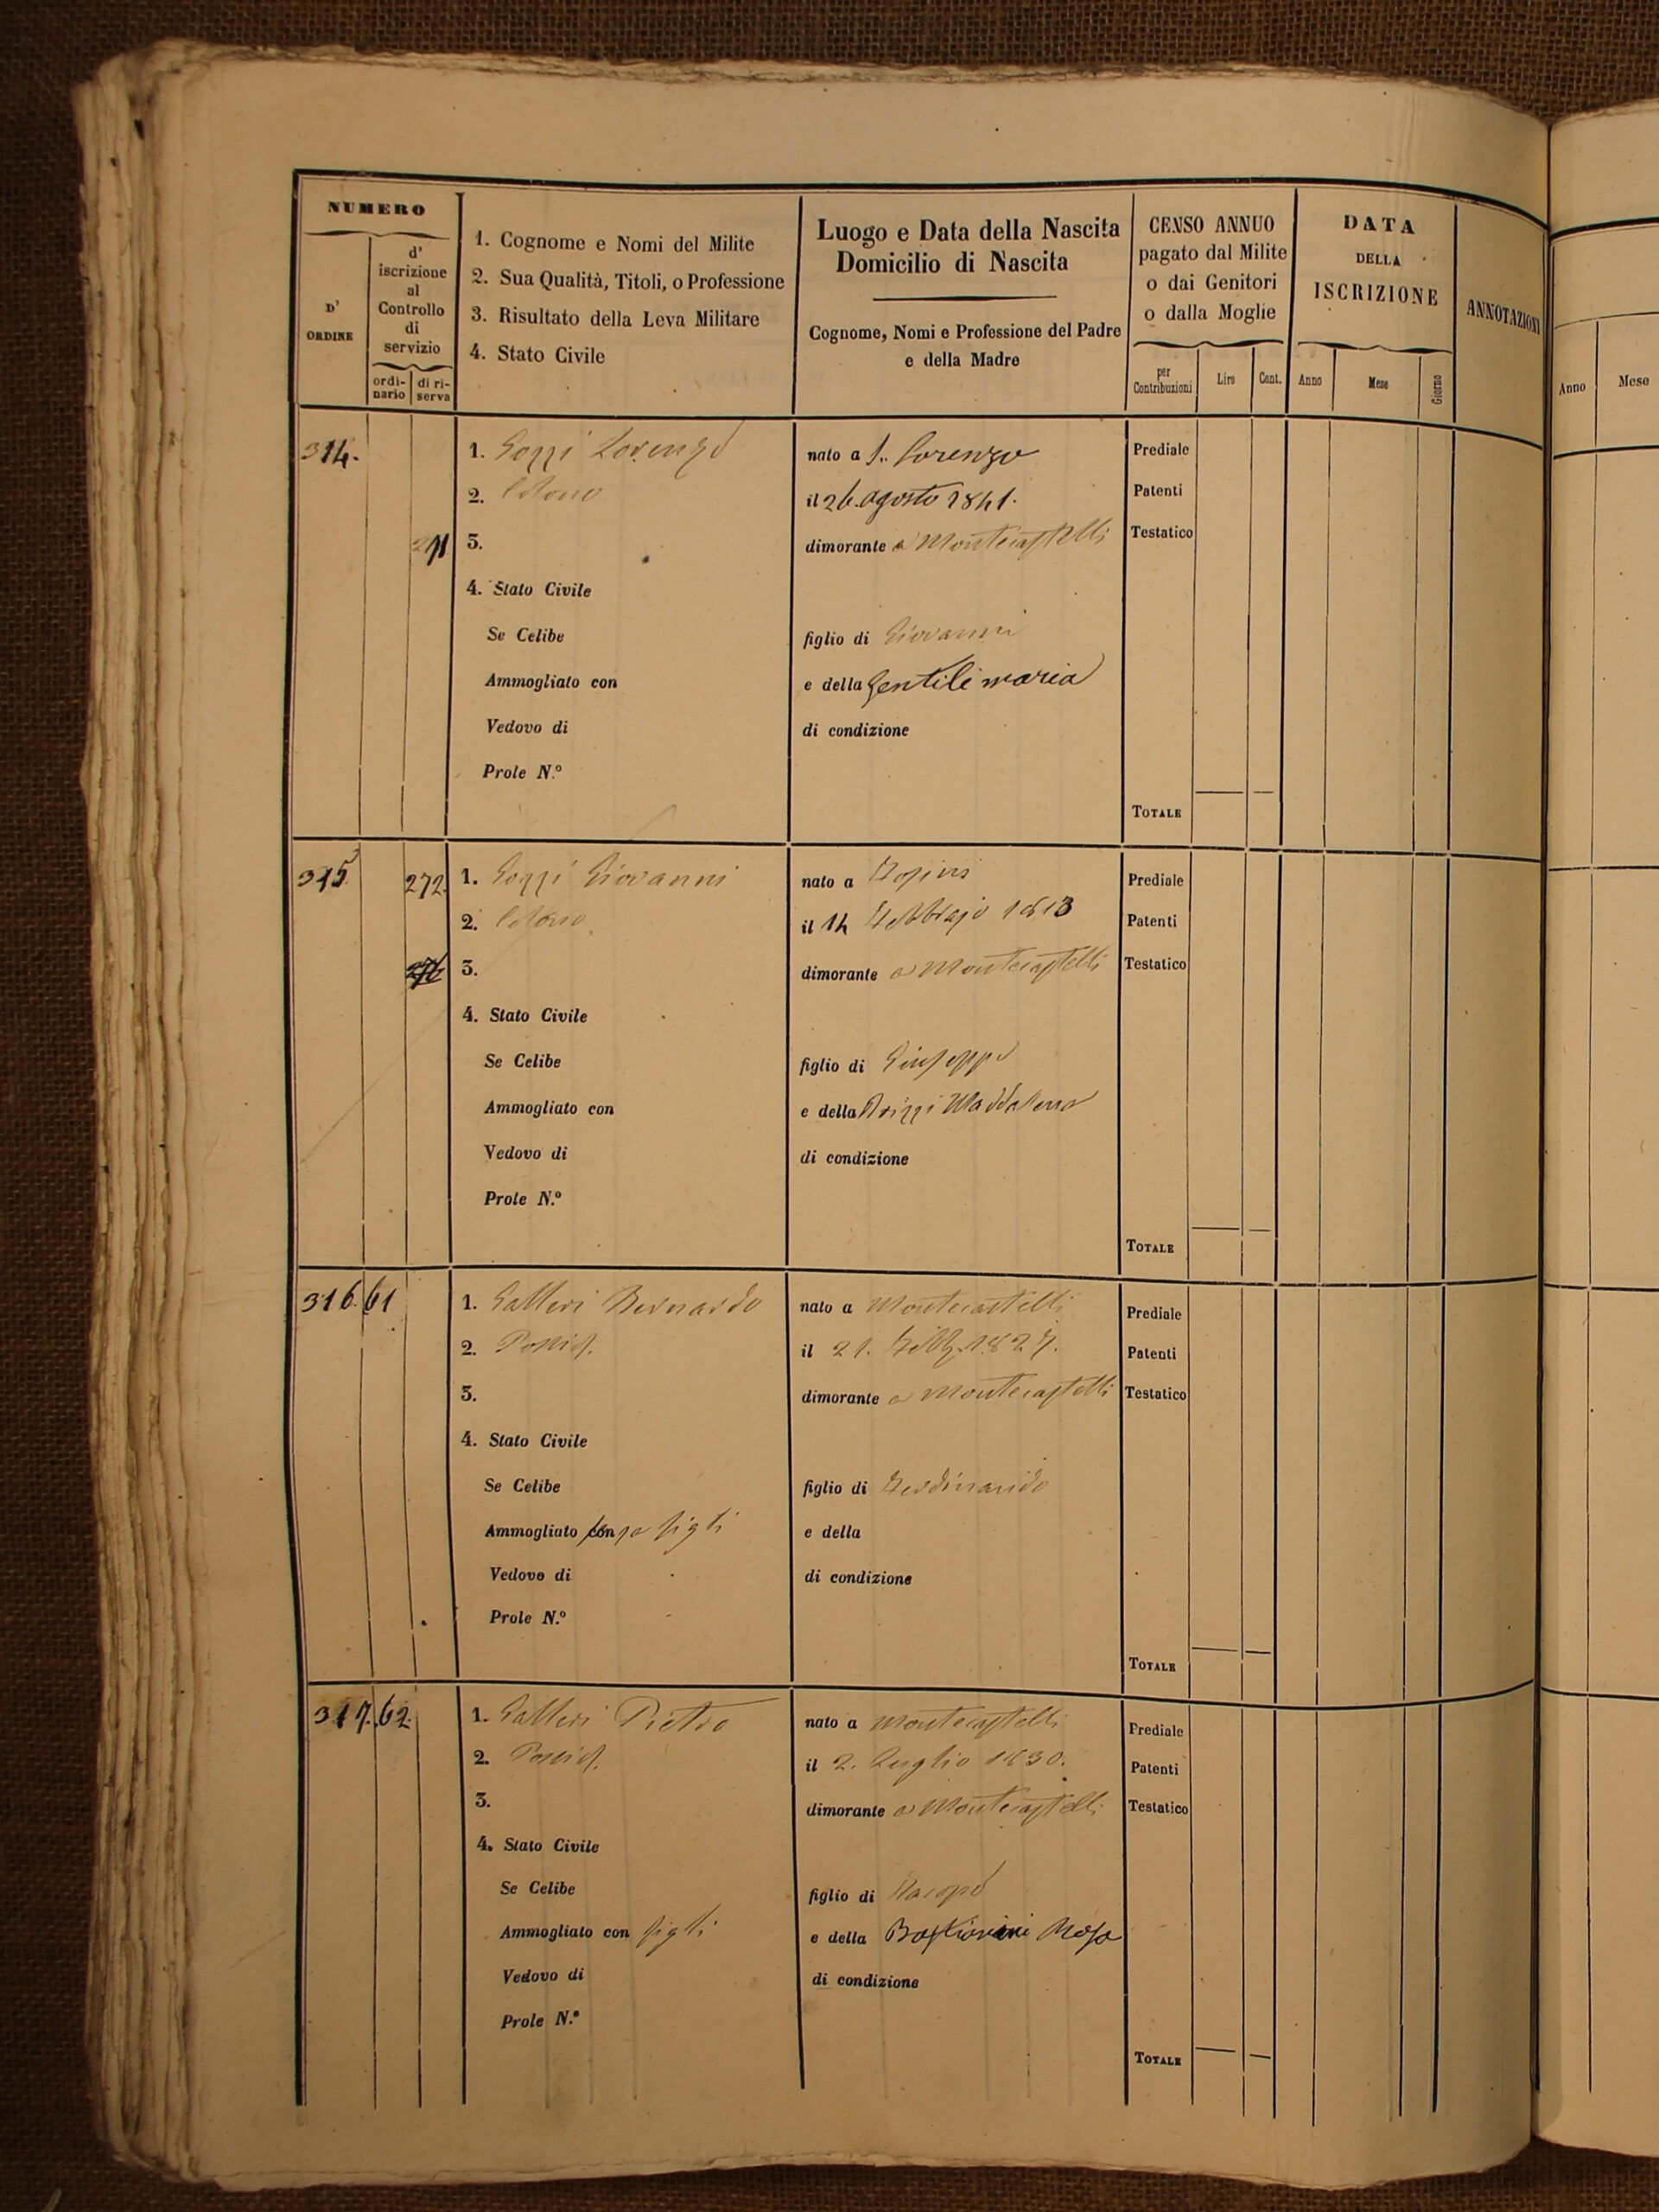 NUMERO
D' ORDINE
d' iscrizione al Controllo di servizio
ordinario
di riserva
1. Cognome e Nomi del Milite
2. Sua Qualità, Titoli, o Professione
3. Risultato della Leva Militare
4. Stato Civile
Luogo e Data della Nascita
Domicilio di Nascita
Cognome, Nomi e Professione del Padre
e della Madre
CENSO ANNUO
pagato dal Milite
o dai Genitori
o dalla Moglie
per Contribuzioni
Lire
Cent.
DATA
DELLA
ISCRIZIONE
Anno
Mese
Giorno
ANNOTAZIONI
Anno
Mese
314.
1. Gozzi Lorenzo
nato a S. Lorenzo
Prediale
2. Colono
il 26. agosto 1841.
Patenti
3.
dimorante a Montecastelli
Testatico
4. Stato Civile
Se Celibe
figlio di Giovanni
Ammogliato con
e della Gentili maria
Vedovo di
di condizione
Prole N.º
TOTALE
315.
272.
1. Gozzi Giovanni
nato a
Prediale
2. Colono
il 14 Febbrajo 1813
Patenti
3.
dimorante a Montecastelli
Testatico
4. Stato Civile
Se Celibe
figlio di Giuseppe
Ammogliato con
e della Maddalena
Vedovo di
di condizione
Prole N.º
TOTALE
316. 61
1. Galleri Bernardo
nato a Montecastelli
Prediale
2. Possid.
il 21. Febb. 1827.
Patenti
3.
dimorante a Montecastelli
Testatico
4. Stato Civile
Se Celibe
figlio di Ferdinando
Ammogliato senza figli
e della
Vedovo di
di condizione
Prole N.º
TOTALE
317. 62.
1. Galleri Pietro
nato a Montecastelli
Prediale
2. Possid.
il 2. Luglio 1830.
Patenti
3.
dimorante a Montecastelli
Testatico
4. Stato Civile
Se Celibe
figlio di Iacopo
Ammogliato con figli
e della Bastianini Rosa
Vedovo di
di condizione
Prole N.º
TOTALE